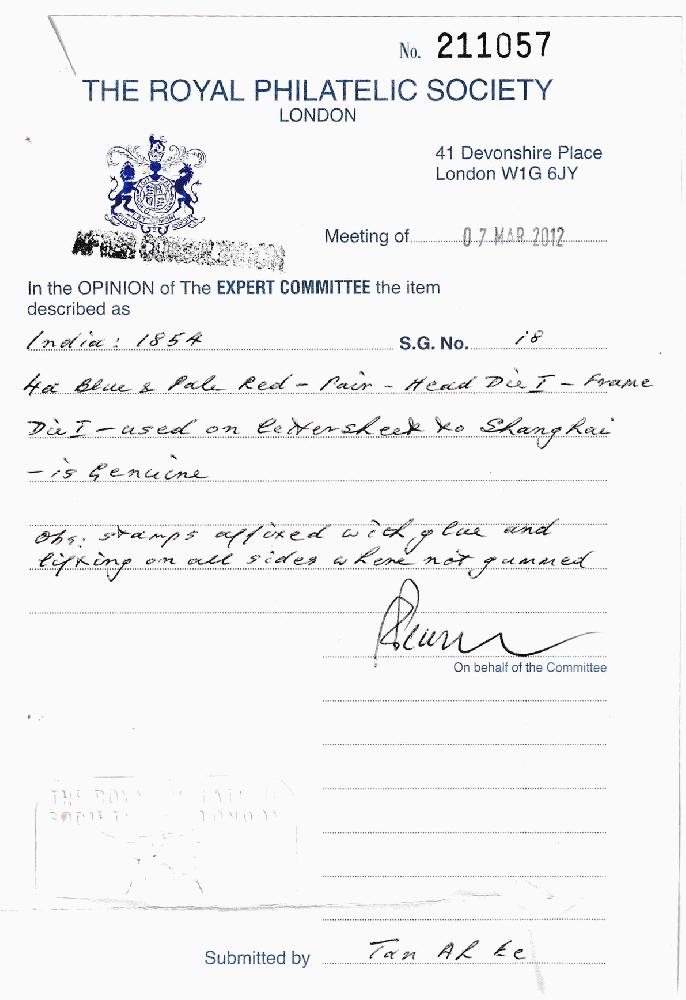 No. 211057
THE ROYAL PHILATELIC SOCIETY
LONDON
41 Devonshire Place
London W1G 6JY
AFTER CONSULTATION
Meeting of 07 MAR 2012
In the OPINION of The EXPERT COMMITTEE the item
described as
India: 1854 S.G. No. 18
4a Blue & Pale Red - Pair - Head Die I - Frame
Die I - used on lettersheet to Shanghai
- is Genuine
Obs: stamps affixed with glue and
lifting on all sides where not gummed
On behalf of the Committee
THE ROYAL PHILATELIC
SOCIETY LONDON
Submitted by Tan Ah Ee